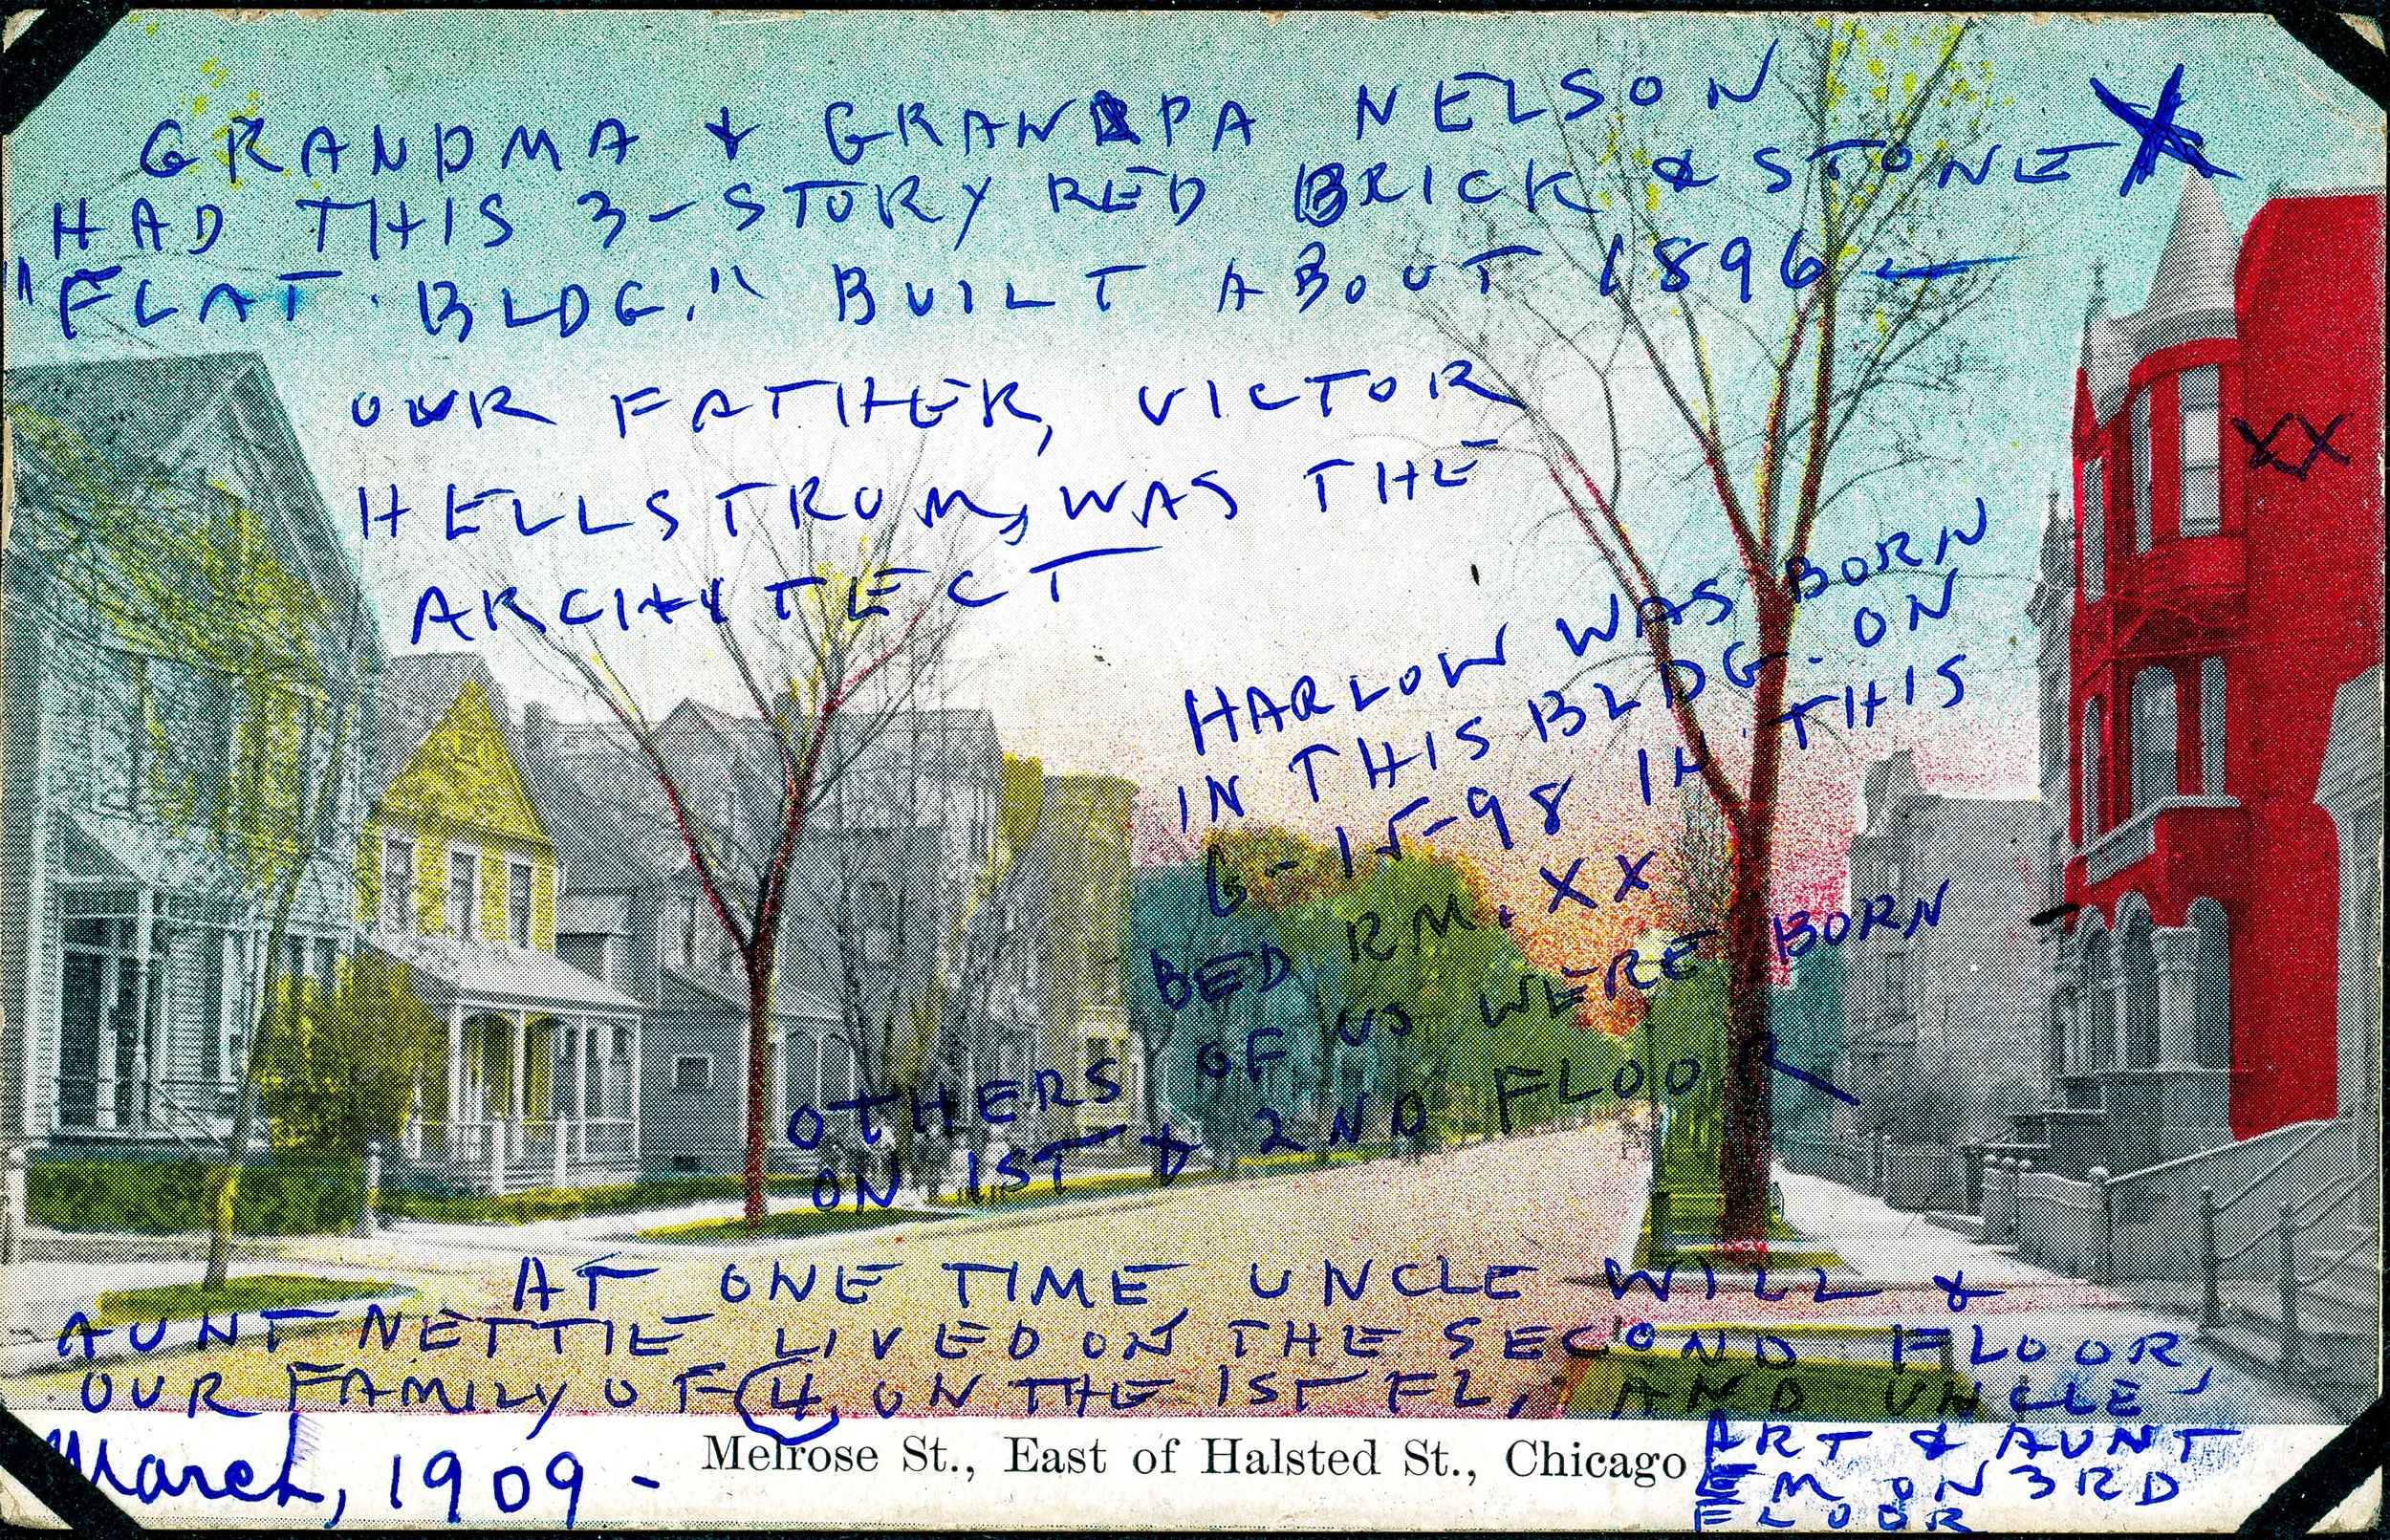 GRANDMA & GRANDPA NELSON X
HAD THIS 3-STORY RED BRICK & STONE
"FLAT BLDG." BUILT ABOUT 1896 —
OUR FATHER, VICTOR
HELLSTROM, WAS THE
ARCHITECT
XX
HARLOW WAS BORN
IN THIS BLDG. ON
6-15-98 IN THIS
BED RM. XX
OTHERS OF US WERE BORN
ON 1ST & 2ND FLOOR
AT ONE TIME, UNCLE WILL &
AUNT NETTIE LIVED ON THE SECOND FLOOR,
OUR FAMILY OF 4, ON THE 1ST FL., AND UNCLE
ART & AUNT
EM ON 3RD
FLOOR
March, 1909 -
Melrose St., East of Halsted St., Chicago